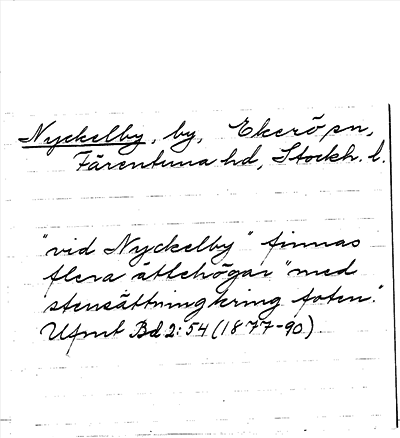 Nyckelby, by, Ekerö sn,
Färentuna hd, Stockh. l.
"vid Nyckelby" finnas
flera ättehögar "med
stensättning kring foten."
Ufmt Bd 2:54 (1877-90)